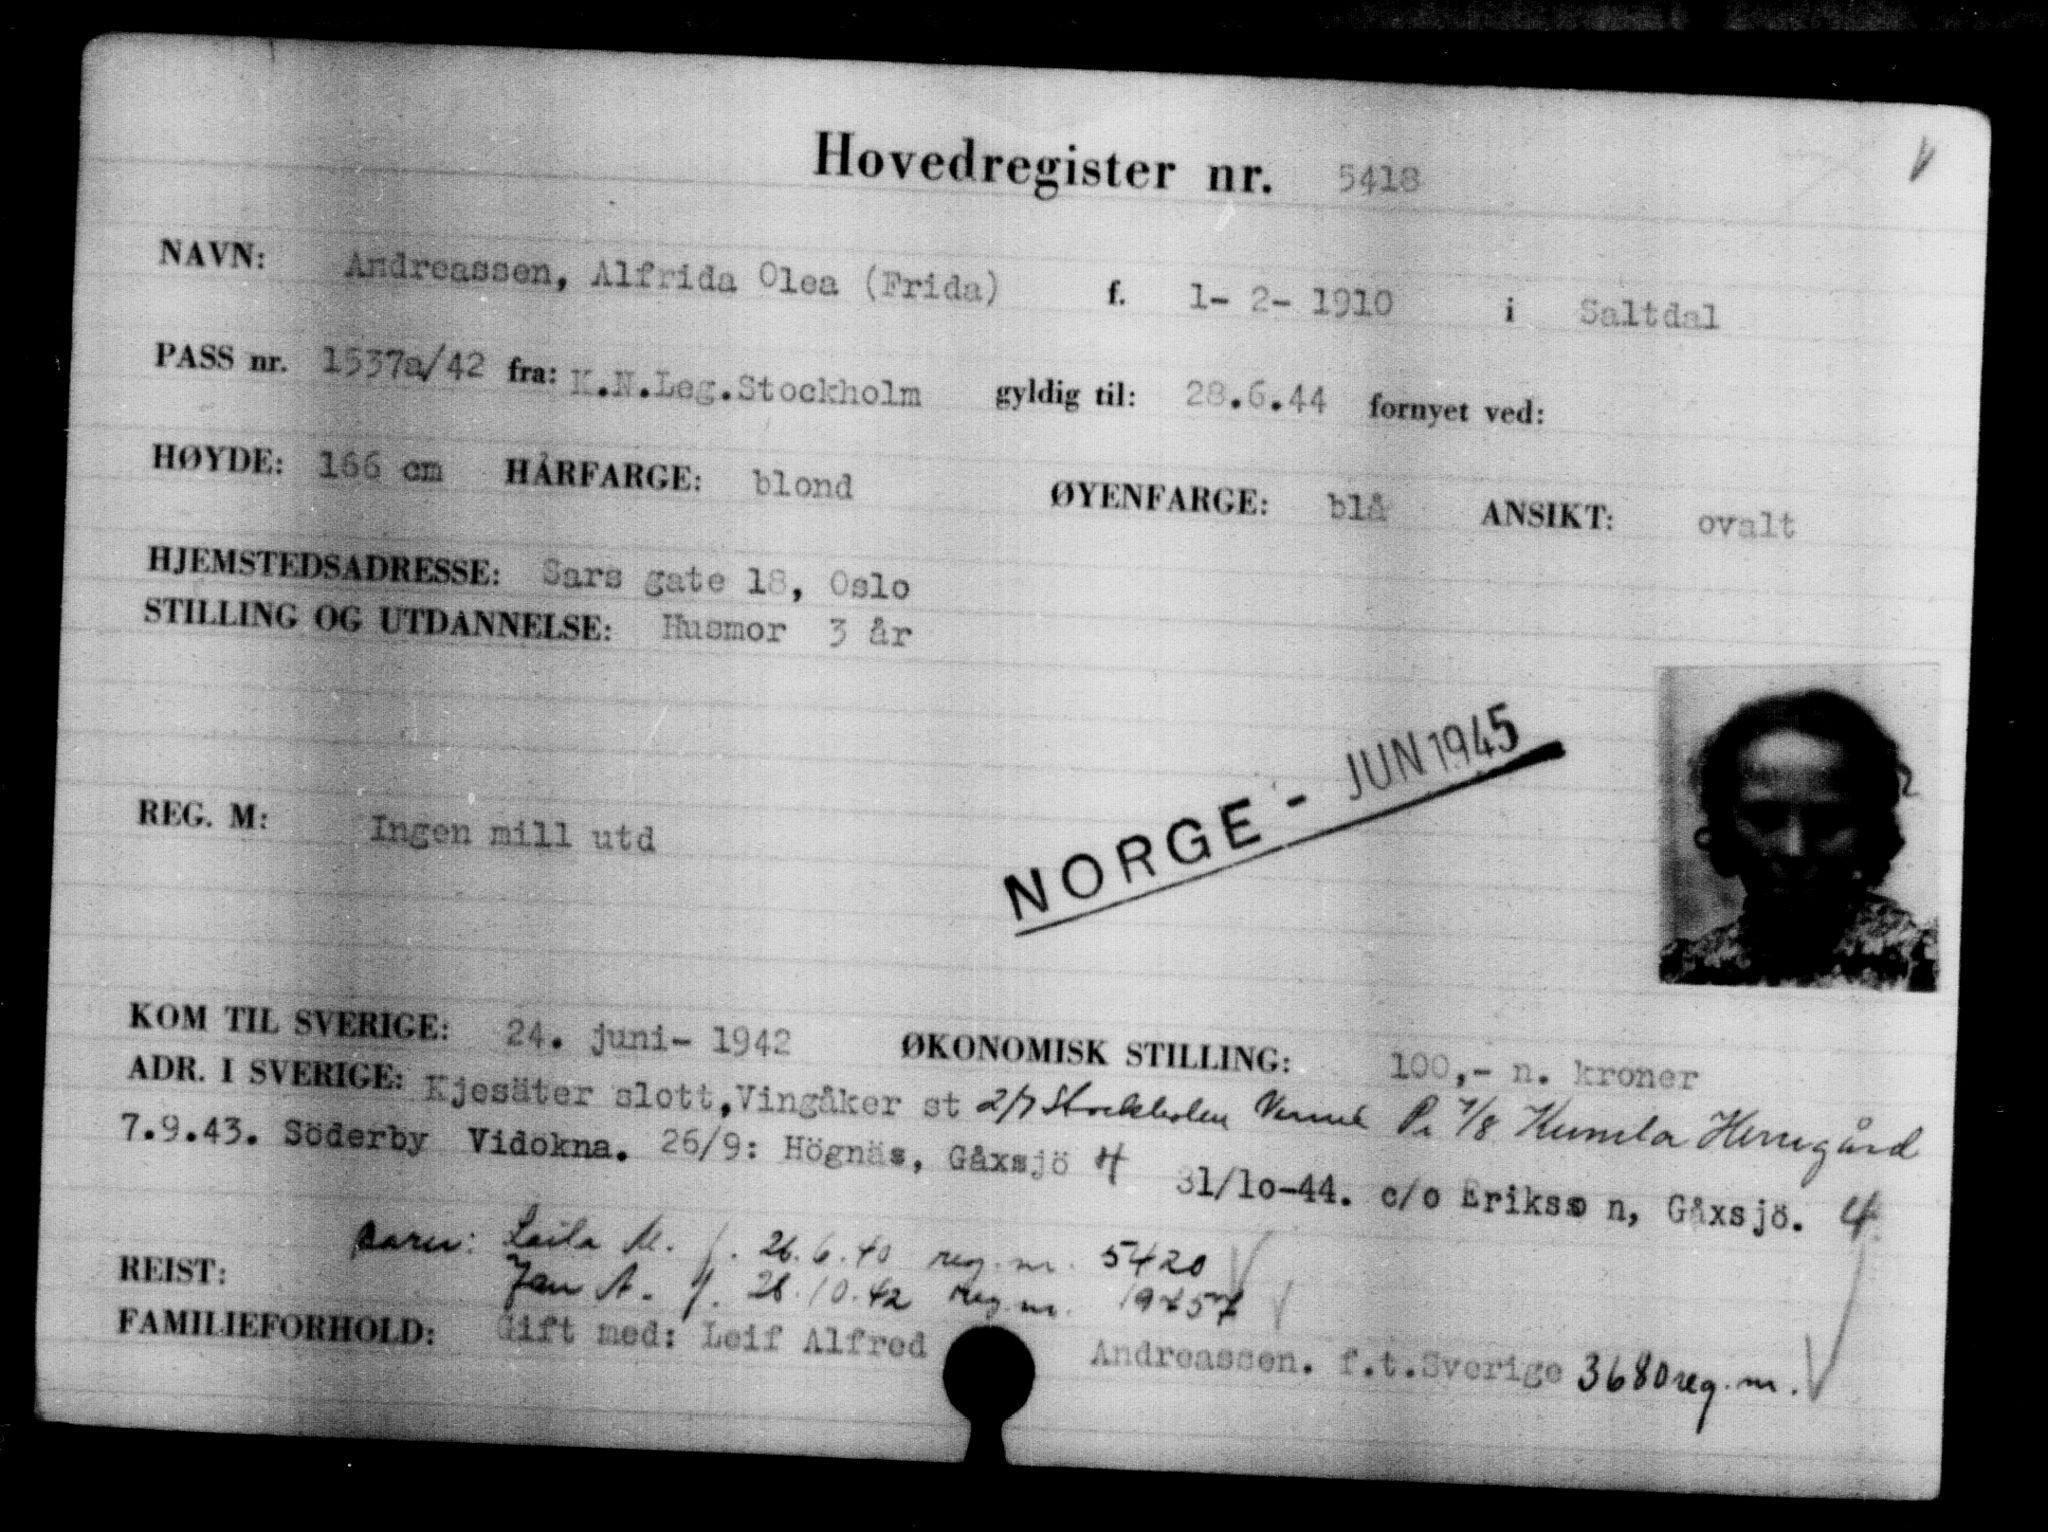 Hovedregister nr. 5418
NAVN: Andreassen, Alfrida Olea (Frida) f. 1- 2- 1910 i Saltdal
PASS nr. 1537a/42 fra: K.N.Leg.Stockholm gyldig til: 28.6.44 fornyet ved:
HØYDE: 166 cm HÅRFARGE: blond ØYENFARGE: blå ANSIKT: ovalt
HJEMSTEDSADRESSE: Sars gate 18, Oslo
STILLING OG UTDANNELSE: Husmor 3 år
NORGE - JUN 1945
REG. M: Ingen mill utd
KOM TIL SVERIGE: 24. juni- 1942 ØKONOMISK STILLING: 100,- n. kroner
ADR. I SVERIGE: Kjesäter slott, Vingåker st 2/7 Stockholm 7/8 Kumla Herregård
7.9.43. Söderby Vidökna. 26/9: Högnäs, Gåxsjö 4 31/10-44. c/o Eriksson, Gåxsjö. 4
barn: Laila M. f. 26.6.40 reg. nr. 5420
REIST: Jan A. f. 28.10.42 reg. nr.
FAMILIEFORHOLD: Gift med: Leif Alfred Andreassen. f.t.Sverige 3680 reg. nr.